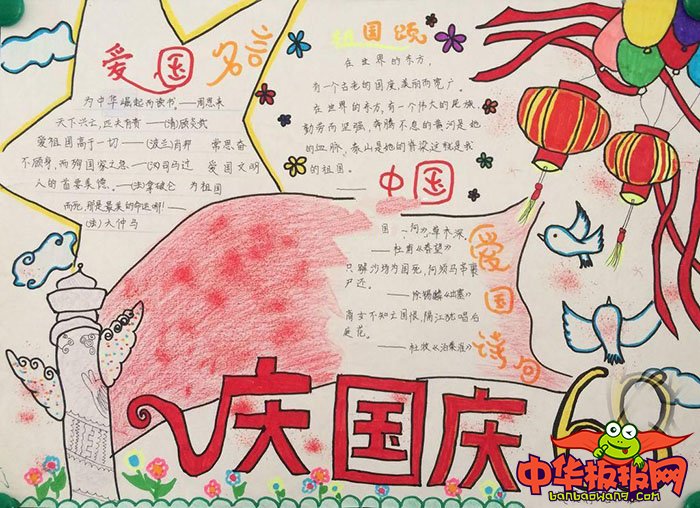 爱国名言
为中华崛起而读书,——周恩来
天下兴亡,匹夫有责——(清)顾炎武
爱祖国高于一切——(波兰)肖邦 常思奋
不顾身,而殉国家之急——(汉)司马迁 爱国文明
人的首要美德。——(法)拿破仑 为祖国
而死,那是最美的命运啊!——
(法)大仲马
祖国颂
在世界的东方,
有一个古老的国度美丽而宽广。
在世界的东方,有一个伟大的民族
勤劳而坚强,奔腾不息的黄河是她
的血脉、泰山是她的脊梁这就是我
的祖国。
——中国
国 草木深,
——杜甫《春望》
只解沙场为国死,何须马革裹
尸还。
——徐锡麟《出塞》
商女不知亡国恨,隔江犹唱后
庭花。
——杜牧《泊秦淮》
爱国诗句
庆国庆 6
中华板报网
banbaowang.com